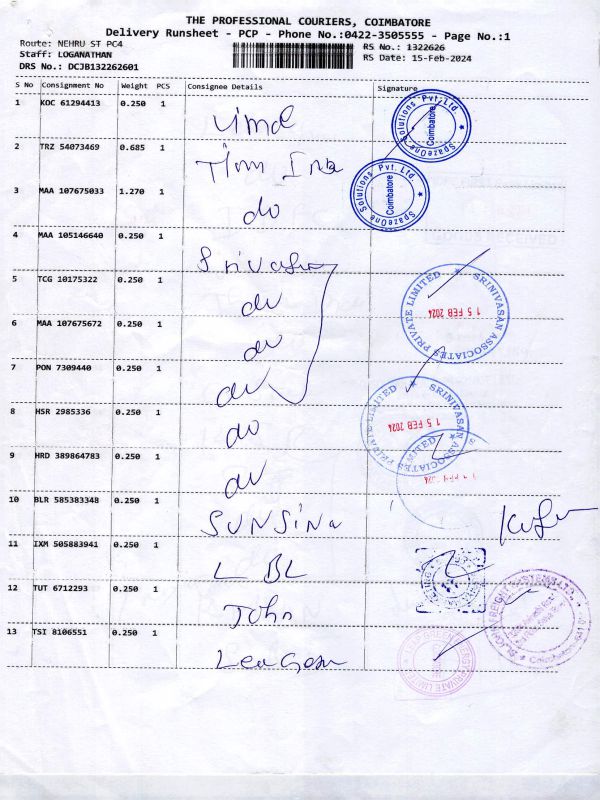 THE PROFESSIONAL COURIERS, COIMBATORE
Delivery Runsheet - PCP - Phone No.:0422-3505555 - Page No.:1
Route: NEHRU ST PC4
RS No.: 1322626
Staff: LOGANATHAN
RS Date: 15-Feb-2024
DRS No.: DCJB132262601
S No Consignment No Weight PCS Consignee Details Signature
1 KOC 61294413 0.250 1
SpazeOne Solutions Pvt. Ltd. Coimbatore
2 TRZ 54073469 0.685 1
SpazeOne Solutions Pvt. Ltd. Coimbatore
3 MAA 107675033 1.270 1 do
4 MAA 105146640 0.250 1
5 TCG 10175322 0.250 1 do
SRINIVASAN ASSOCIATES PRIVATE LIMITED 15 FEB 2024
6 MAA 107675672 0.250 1 do
7 PON 7309440 0.250 1 do
SRINIVASAN ASSOCIATES PRIVATE LIMITED 15 FEB 2024
8 HSR 2985336 0.250 1 do
9 HRD 389864783 0.250 1 do
10 BLR 585383348 0.250 1
11 IXM 505883941 0.250 1 L BL
12 TUT 6712293 0.250 1 John
13 TSI 8106551 0.250 1